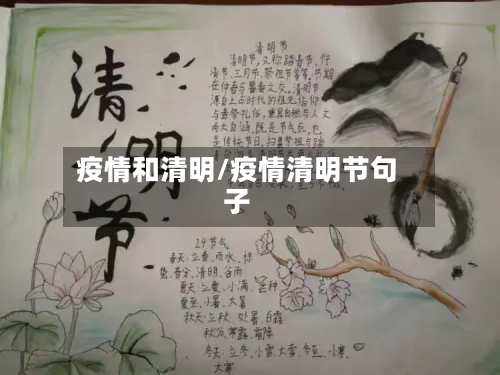 清明节
清明节
清明节,又称踏青节、行
清节、三月节、祭祖节等等,节期
在仲春与暮春之交。清明节
源自上古时代的祖先信仰
与春祭礼俗,兼具自然与人文
两大内涵,既是节气,也
是传统节日,扫墓祭祖与踏
疫情和清明/疫情清明节句
子
24节气
春天:立春、雨水、惊
蛰、春分、清明、谷雨
夏天:立夏、小满、芒种
夏至、小暑、大暑
秋天:立秋、处暑、白露
秋分、寒露、霜降
冬天:立冬、小雪、大雪、冬至、小寒、
大寒